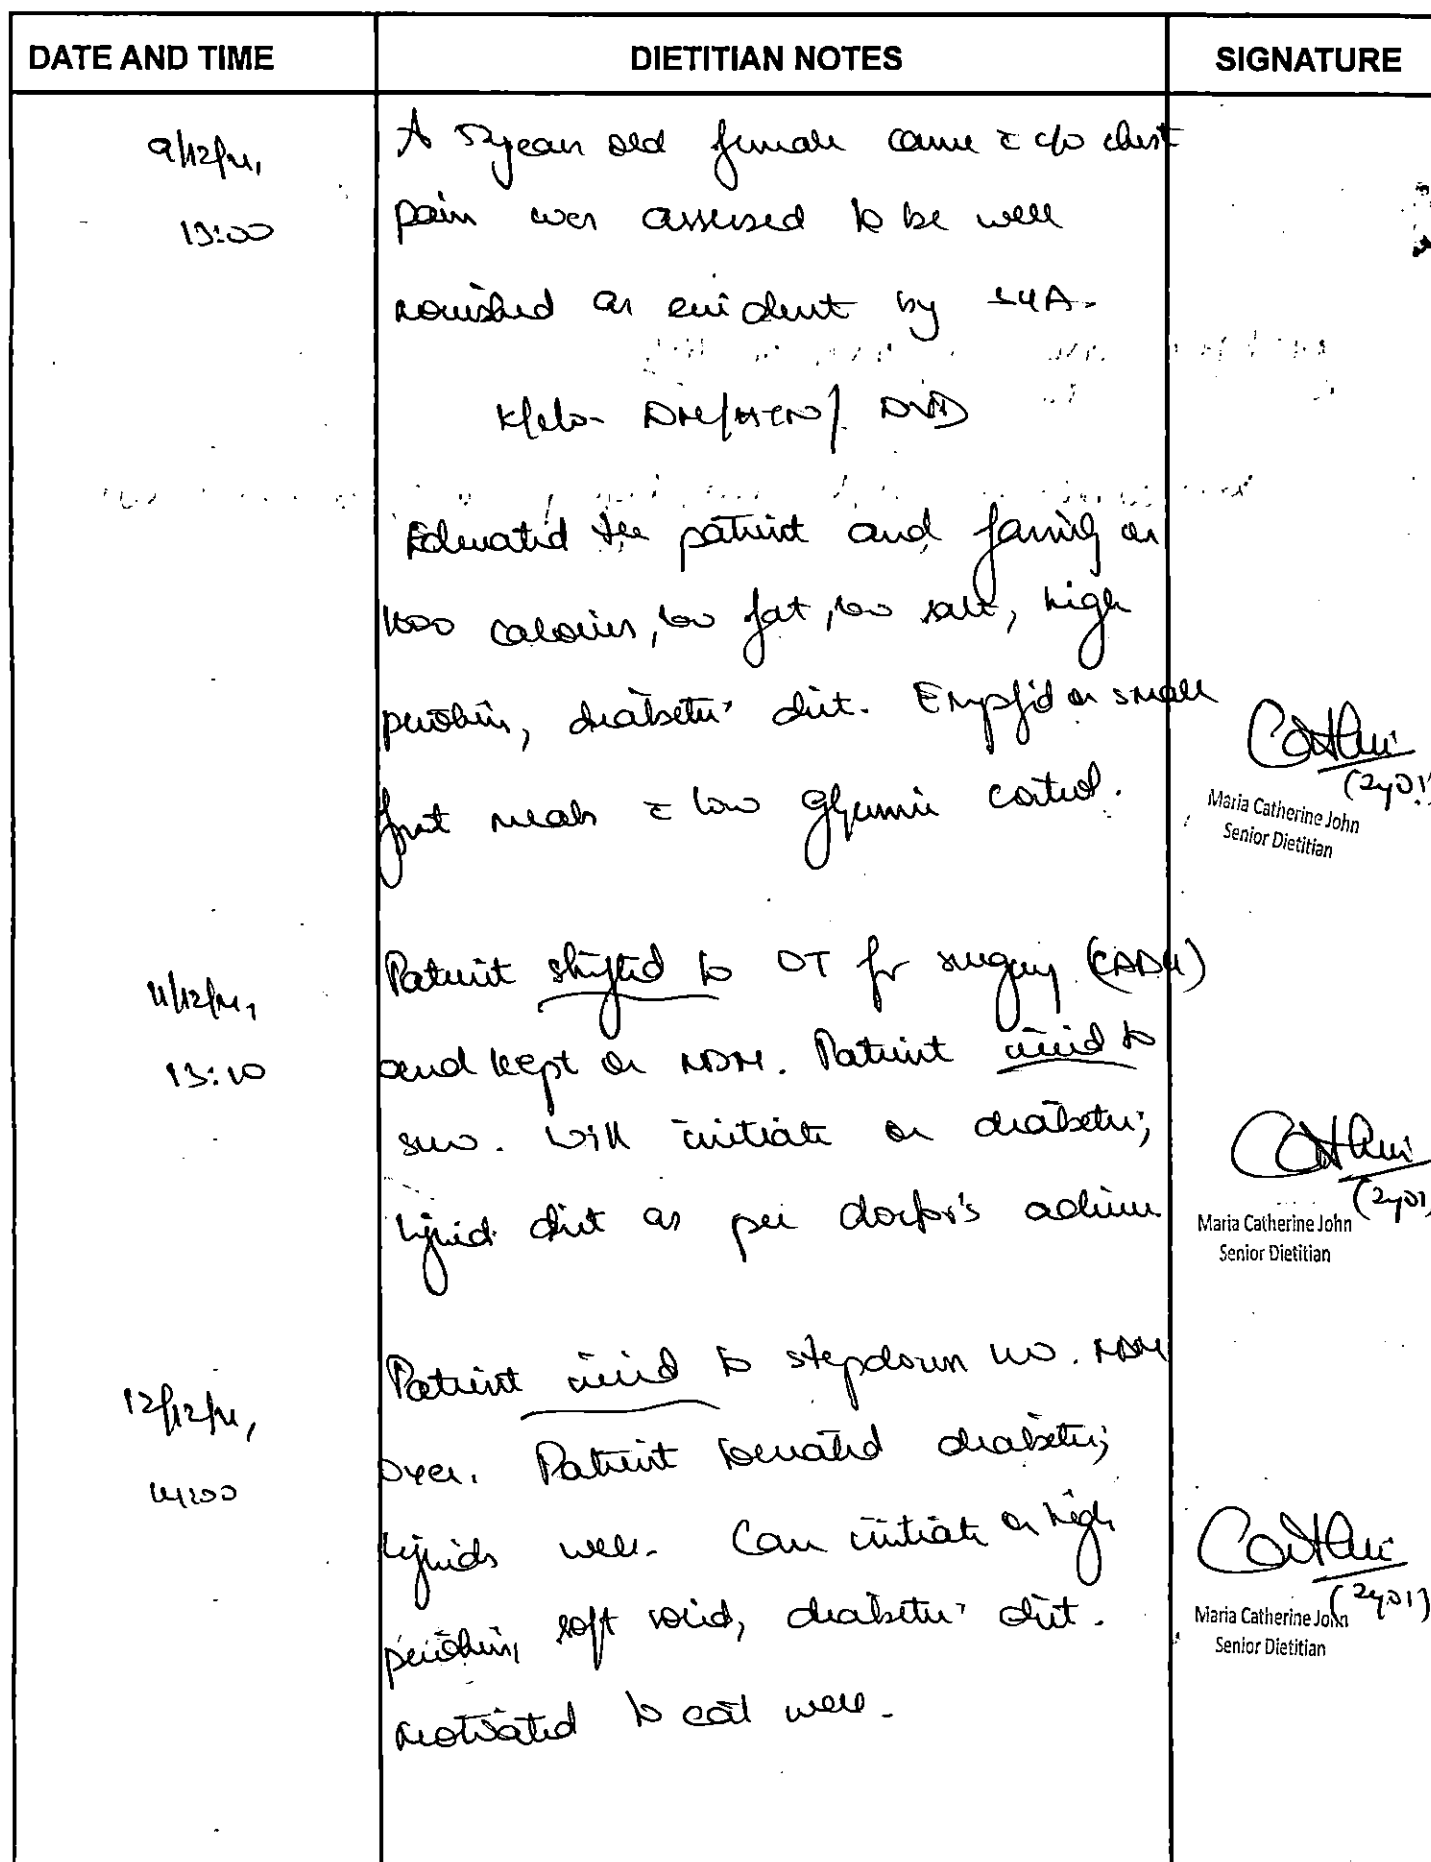 DATE AND TIME
DIETITIAN NOTES
SIGNATURE
9/12/21,
13:00
A 52year old female came c̄ c/o chest
pain was assessed to be well
nourished as evident by SGA.
K/c/o- DM/HTN/ DVD
Educated the patient and family on
calories, low fat, low salt, high
protein, diabetic diet. Emp'd on small
frqt meals c̄ low glycemic control.
Catherine
Maria Catherine John
Senior Dietitian
11/12/21,
13:10
Patient shifted to OT for surgery (CABG)
and kept on NBM. Patient to
Will initiate on diabetic,
liquid diet as per doctor's advice
Catherine
Maria Catherine John
Senior Dietitian
12/12/21,
14:00
Patient to stepdown NBM
over. Patient tolerated diabetic,
liquids well. Can initiate on high
protein, soft solid, diabetic diet.
motivated to eat well.
Catherine
Maria Catherine John
Senior Dietitian